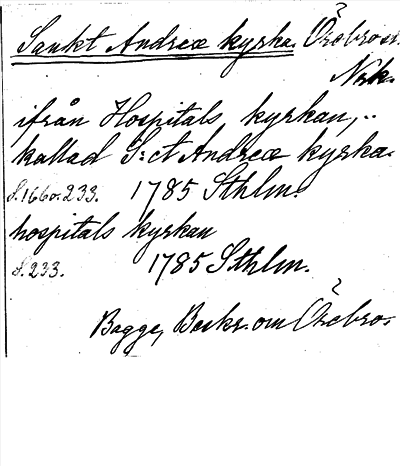 Sankt Andreæ kyrka. Örebro sn.
Nrk.
ifrån Hospitals, kyrkan, ..
kallad S:ct Andreæ kyrka.
s. 166 o. 233. 1785 Sthlm.
hospitals kyrkan
s. 233. 1785 Sthlm.
Bagge, Beskr. om Örebro.